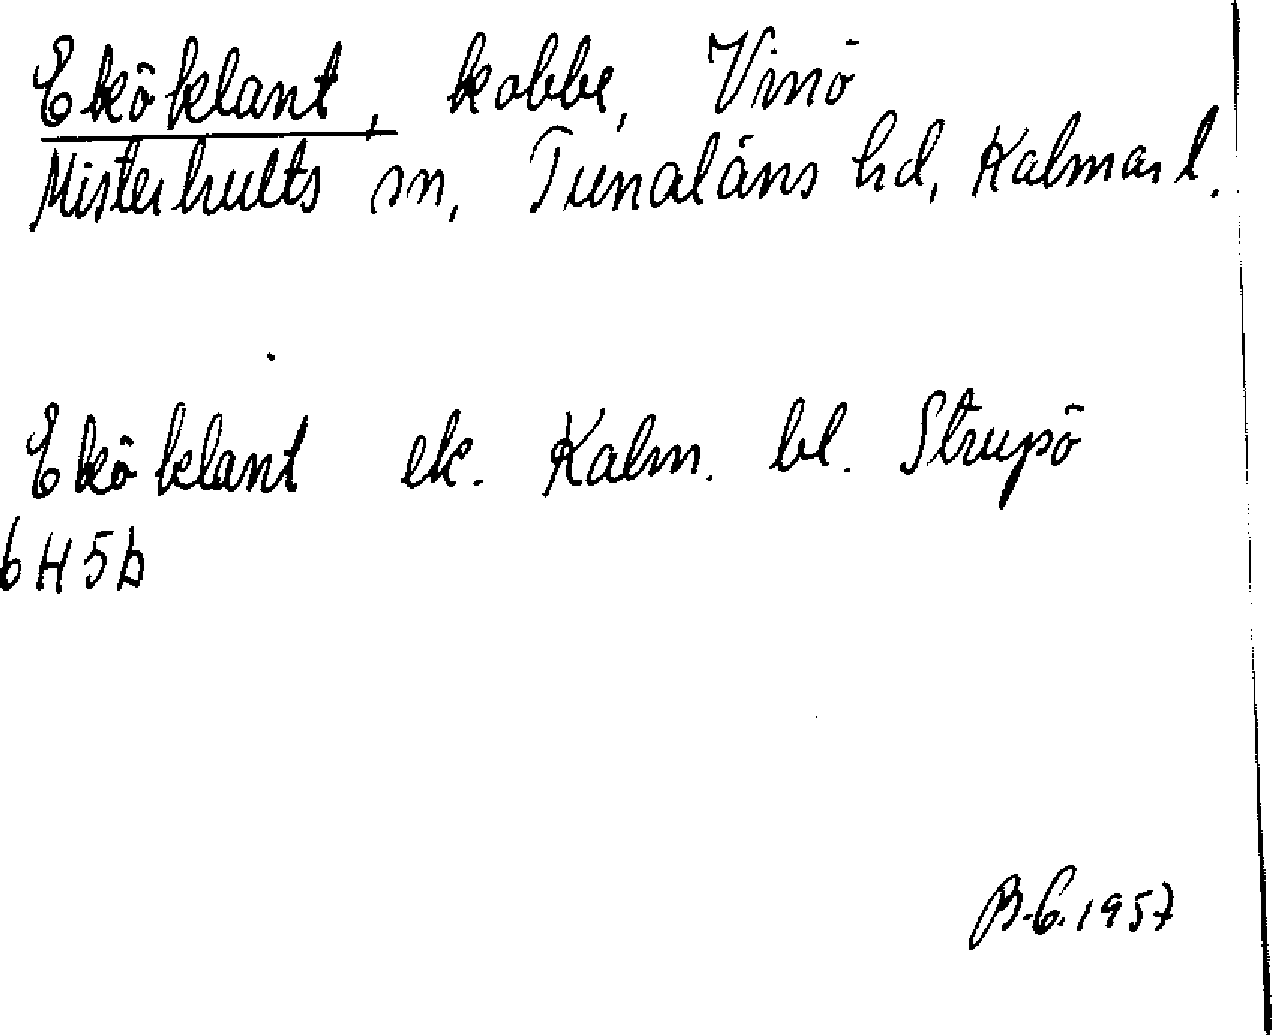 Eköklant, kobbe, Vinö
Misterhults sn, Tunaläns hd, Kalmar l.
Eköklant ek. Kalm. bl. Strupö
6H5b
1957